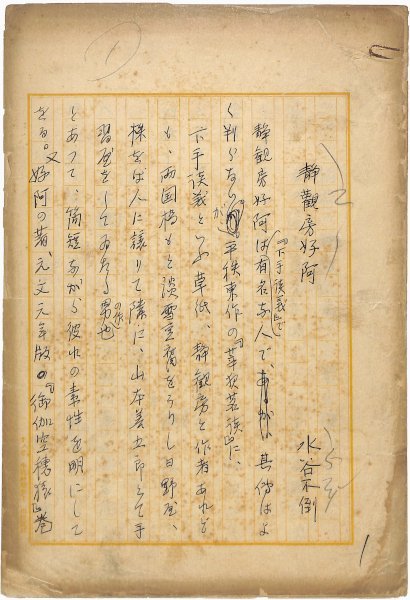 静觀房好阿
水谷不倒
静観房好阿は『下手談義』で有名な人で、其傳はよ
く判らないが、平秩東作の『莘野茗談』に、
下手談義といふ草紙、静観房と作者あれど
も、両国橋もと淡雪豆腐をうりし日野屋、
株をば人に譲りて隣に、山本善五郎とて手
習屋をしてゐたる男の作也
とあつて、簡短ながら彼れの素性を明にして
をる。又好阿の著、元文元年版の『御伽空穂猿』巻
1